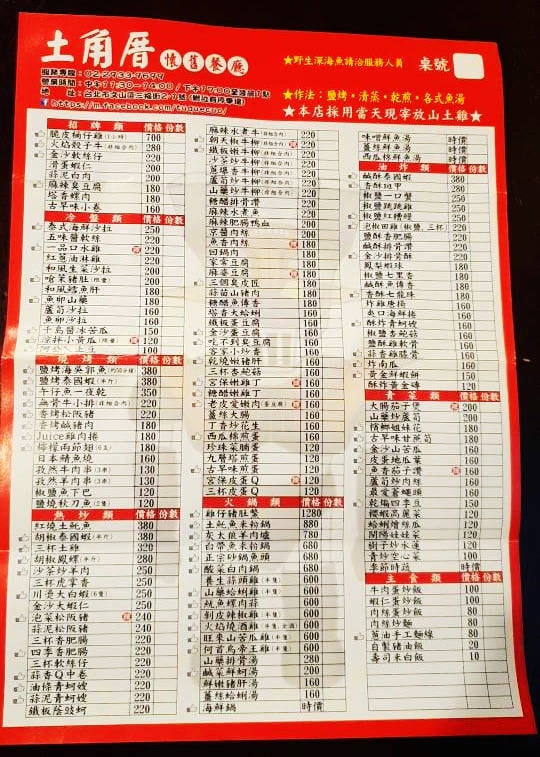 土角厝 懷舊餐廳
服務專線：02-2933-9699
營業時間：中午11:30~14:00 / 下午17:00至凌晨1點
https://m.facebook.com/tuquecuo/
★野生深海魚請洽服務人員
桌號
★作法：鹽烤・清蒸・乾煎・各式魚湯
★本店採用當天現宰放山土雞★
招牌類 價格 份數
脆皮桶仔雞 700
火焰骰子牛 280
金沙軟絲仔 220
滑蛋蝦仁 200
蒜泥白肉 200
麻辣臭豆腐 180
塔香螺肉 180
古早味小卷 160
冷盤類 價格 份數
泰式海鮮沙拉 220
五味醬軟絲 220
一品口水雞 220
紅蔥油淋雞 220
和風生菜沙拉 200
嗆菜豬肚 200
和風鱈魚肝 180
魚卵山藥 180
蘆筍沙拉 160
魚卵沙拉 160
千島醬冰苦瓜 150
涼拌小黃瓜 120
100
燒烤類 價格 份數
鹽烤海吳郭魚 380
鹽烤泰國蝦(半斤) 380
午仔魚一夜乾 350
無骨牛小排 220
香烤松阪豬 220
香烤鹹豬肉 180
Juice雞肉捲 180
檸檬雨節翅 160
日本鯖魚燒 160
孜然牛肉串 130
孜然羊肉串 130
椒鹽魚下巴 120
鹽燒秋刀魚 120
熱炒類 價格 份數
紅燒土魠魚 380
胡椒泰國蝦(半斤) 380
三杯土雞 320
胡椒鳳螺(半斤) 280
沙茶炒羊肉 250
三杯虎掌香 250
川燙大白蝦 250
金沙大蝦仁 250
泡菜松阪豬 240
蒜泥松阪豬 220
三杯香肥腸 220
四季香肥腸 220
三杯軟絲仔 220
蒜香Q中卷 220
油條青蚵嫂 220
蒜泥青蚵嫂 220
鐵板蔭豉蚵 220
麻辣水煮牛 220
朝天椒牛 220
鐵板嫩牛柳 200
沙茶炒牛柳 200
蔥爆香牛柳 200
芥藍炒牛柳 200
山藥炒牛柳 200
糖醋排骨 200
麻辣水煮魚 200
麻辣肥腸鴨血 200
京醬肉絲 200
魚香肉絲 180
回鍋肉 180
客家豆腐 180
麻婆豆腐 180
三個臭皮匠 180
蒜苗山豬肉 180
糖醋魚傳香 180
塔香大蛤蜊 160
鐵板臭豆腐 160
金沙蛋豆腐 160
吃不到臭豆腐 160
客家小炒香 160
乾燒嫩豬肝 160
三杯杏鮑菇 160
宮保嫩雞丁 160
糖醋嫩雞丁 160
老皮愛嫩肉 160
薑絲大腸 160
丁香炒花生 160
西瓜綿煎蛋 160
珍珠菜脯蛋 120
九層塔煎蛋 120
古早味煎蛋 120
宮保皮蛋Q 120
三杯皮蛋Q 120
火鍋類 價格 份數
雞仔豬肚鱉 1280
土魠魚米粉鍋 880
灰太狼羊肉爐 780
白帶魚米粉鍋 680
正宗砂鍋魚頭 680
酸菜白肉鍋 680
養生蒜頭雞 600
山藥蛤蜊雞 600
魷魚螺肉蒜 600
剝皮辣椒雞 600
火焰燒酒雞 600
旺來山苦瓜雞 600
何首烏帝王雞 600
山藥排骨湯 280
鹹菜鮮蚵湯 160
鮮嫩豬肝湯 160
薑絲蛤蜊湯 160
海鮮鍋 時價
味噌鮮魚湯 時價
薑絲鮮魚湯 時價
西瓜棉鮮魚湯 時價
油炸類 價格 份數
鹹酥泰國蝦 380
香酥斑甲 280
椒鹽一口蟹 250
椒鹽跳跳雞 250
椒鹽紅糟鰻 250
泡椒田雞(椒鹽、三杯) 220
鹽酥香肥腸 220
鹹酥排骨 220
金沙排骨酥 220
鳳梨蝦球 180
椒鹽七里香 180
鹹酥魚傳香 180
香酥七龍珠 180
炸雞唐揚 160
爽口海鮮捲 160
酥炸青蚵嫂 160
椒鹽杏鮑菇 160
酥炸嫩蚵菜 160
蒜香雞膝骨 160
炸南瓜 160
黃金鮮蝦餅 150
酥炸黃金磚 120
青菜類 價格 份數
大腸茄子煲 200
山藥炒蘆筍 200
檳榔姐妹花 180
古早味甘蔗筍 180
金沙山苦瓜 160
皮蛋地瓜葉 160
魚香茄子 160
蘆筍炒肉絲 160
最愛蒼蠅頭 160
乾煸四季豆 150
櫻蝦高麗菜 150
蛤蜊燴絲瓜 120
開陽娃娃菜 120
樹子炒水蓮 120
青炒空心菜 100
季節時蔬 時價
主食類 價格 份數
牛肉蛋炒飯 100
蝦仁蛋炒飯 100
肉絲蛋炒飯 80
肉絲炒麵 80
蔥油手工麵線 80
自製豬油飯 20
壽司米白飯 10